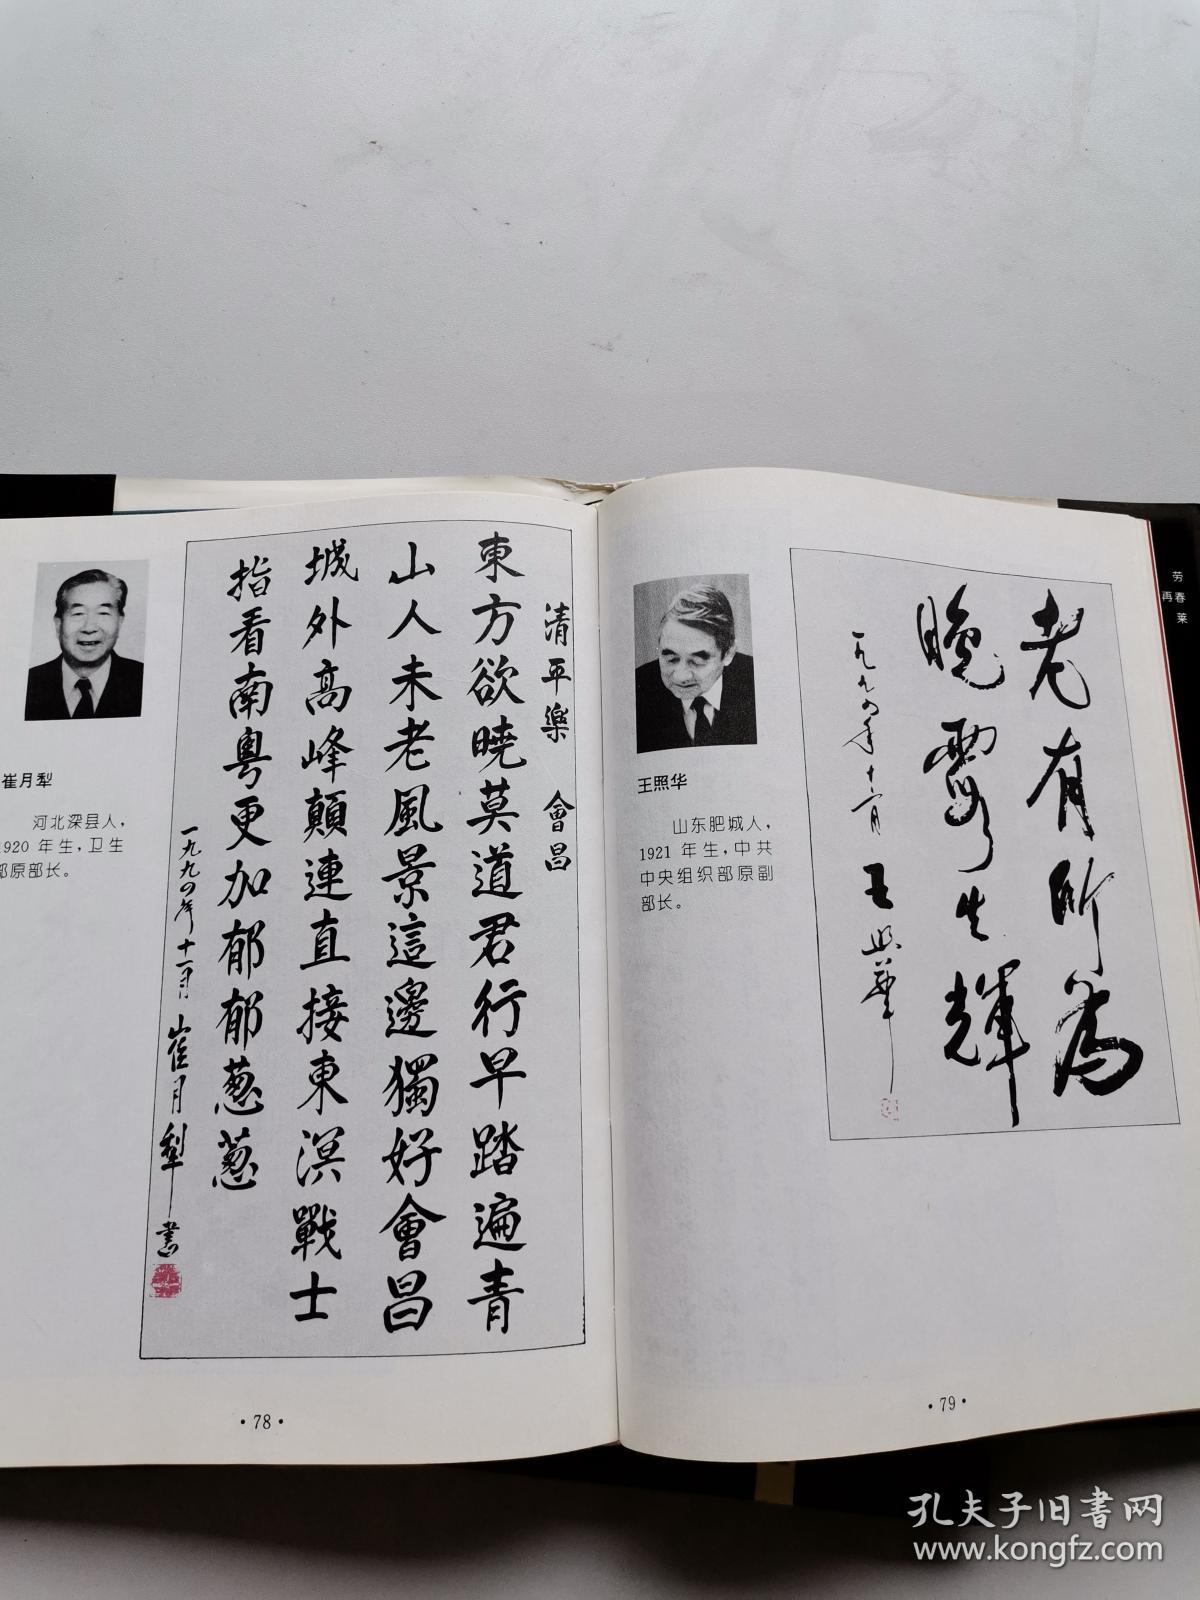 崔月犁
河北深县人，
1920 年生，卫生
部原部长。
清平樂 會昌
東方欲曉莫道君行早踏遍青
山人未老風景這邊獨好會昌
城外高峰顛連直接東溟戰士
指看南粵更加郁郁葱葱
一九九四年十一月 崔月犁書
·78·
王照华
山东肥城人，
1921 年生，中共
中央组织部原副
部长。
老有所為
晚霞生輝
一九九四年 王照華
·79·
劳
再春
莱
孔夫子旧书网
www.kongfz.com